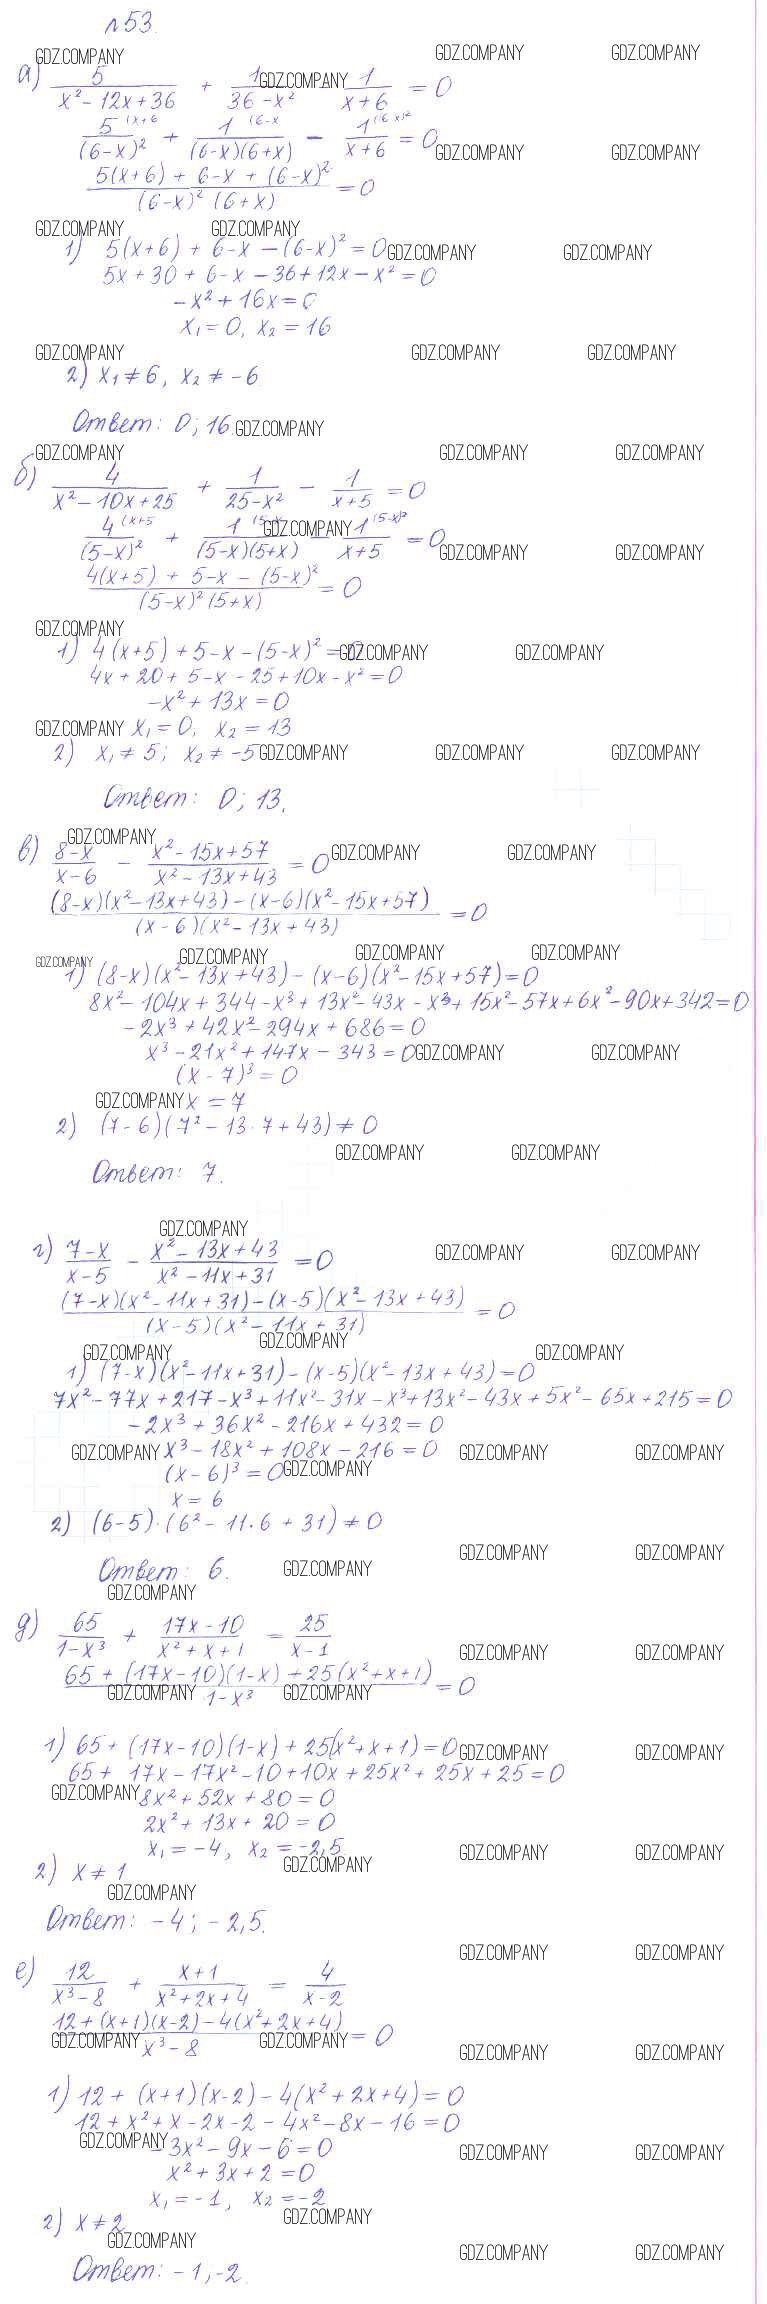 №53.
а) 5/(x² - 12x + 36) + 1/(36 - x²) - 1/(x + 6) = 0
5^(x+6/(6-x)² + 1^(6-x/((6-x)(6+x)) - 1^(6-x)²/(x+6) = 0
(5(x+6) + 6-x + (6-x)²)/((6-x)² (6+x)) = 0
1) 5(x+6) + 6-x - (6-x)² = 0
5x + 30 + 6 - x - 36 + 12x - x² = 0
-x² + 16x = 0
x₁ = 0, x₂ = 16
2) x₁ ≠ 6, x₂ ≠ -6
Ответ: 0; 16.
б) 4/(x² - 10x + 25) + 1/(25 - x²) - 1/(x+5) = 0
4^(x+5/(5-x)² + 1^(5-x/((5-x)(5+x)) - 1^(5-x)²/(x+5) = 0
(4(x+5) + 5-x - (5-x)²)/((5-x)² (5+x)) = 0
1) 4(x+5) + 5-x - (5-x)² = 0
4x + 20 + 5 - x - 25 + 10x - x² = 0
-x² + 13x = 0
x₁ = 0, x₂ = 13
2) x₁ ≠ 5; x₂ ≠ -5
Ответ: 0; 13.
в) (8-x)/(x-6) - (x² - 15x + 57)/(x² - 13x + 43) = 0
((8-x)(x² - 13x + 43) - (x-6)(x² - 15x + 57))/((x-6)(x² - 13x + 43)) = 0
1) (8-x)(x² - 13x + 43) - (x-6)(x² - 15x + 57) = 0
8x² - 104x + 344 - x³ + 13x² - 43x - x³ + 15x² - 57x + 6x² - 90x + 342 = 0
-2x³ + 42x² - 294x + 686 = 0
x³ - 21x² + 147x - 343 = 0
(x - 7)³ = 0
x = 7
2) (7-6)(7² - 13·7 + 43) ≠ 0
Ответ: 7.
г) (7-x)/(x-5) - (x² - 13x + 43)/(x² - 11x + 31) = 0
((7-x)(x² - 11x + 31) - (x-5)(x² - 13x + 43))/((x-5)(x² - 11x + 31)) = 0
1) (7-x)(x² - 11x + 31) - (x-5)(x² - 13x + 43) = 0
7x² - 77x + 217 - x³ + 11x² - 31x - x³ + 13x² - 43x + 5x² - 65x + 215 = 0
-2x³ + 36x² - 216x + 432 = 0
x³ - 18x² + 108x - 216 = 0
(x - 6)³ = 0
x = 6
2) (6-5)·(6² - 11·6 + 31) ≠ 0
Ответ: 6.
д) 65/(1-x³) + (17x - 10)/(x² + x + 1) = 25/(x-1)
(65 + (17x-10)(1-x) + 25(x² + x + 1))/(1-x³) = 0
1) 65 + (17x-10)(1-x) + 25(x² + x + 1) = 0
65 + 17x - 17x² - 10 + 10x + 25x² + 25x + 25 = 0
8x² + 52x + 80 = 0
2x² + 13x + 20 = 0
x₁ = -4, x₂ = -2,5
2) x ≠ 1
Ответ: -4; -2,5.
е) 12/(x³-8) + (x+1)/(x² + 2x + 4) = 4/(x-2)
(12 + (x+1)(x-2) - 4(x² + 2x + 4))/(x³-8) = 0
1) 12 + (x+1)(x-2) - 4(x² + 2x + 4) = 0
12 + x² + x - 2x - 2 - 4x² - 8x - 16 = 0
-3x² - 9x - 6 = 0
x² + 3x + 2 = 0
x₁ = -1, x₂ = -2
2) x ≠ 2
Ответ: -1; -2.